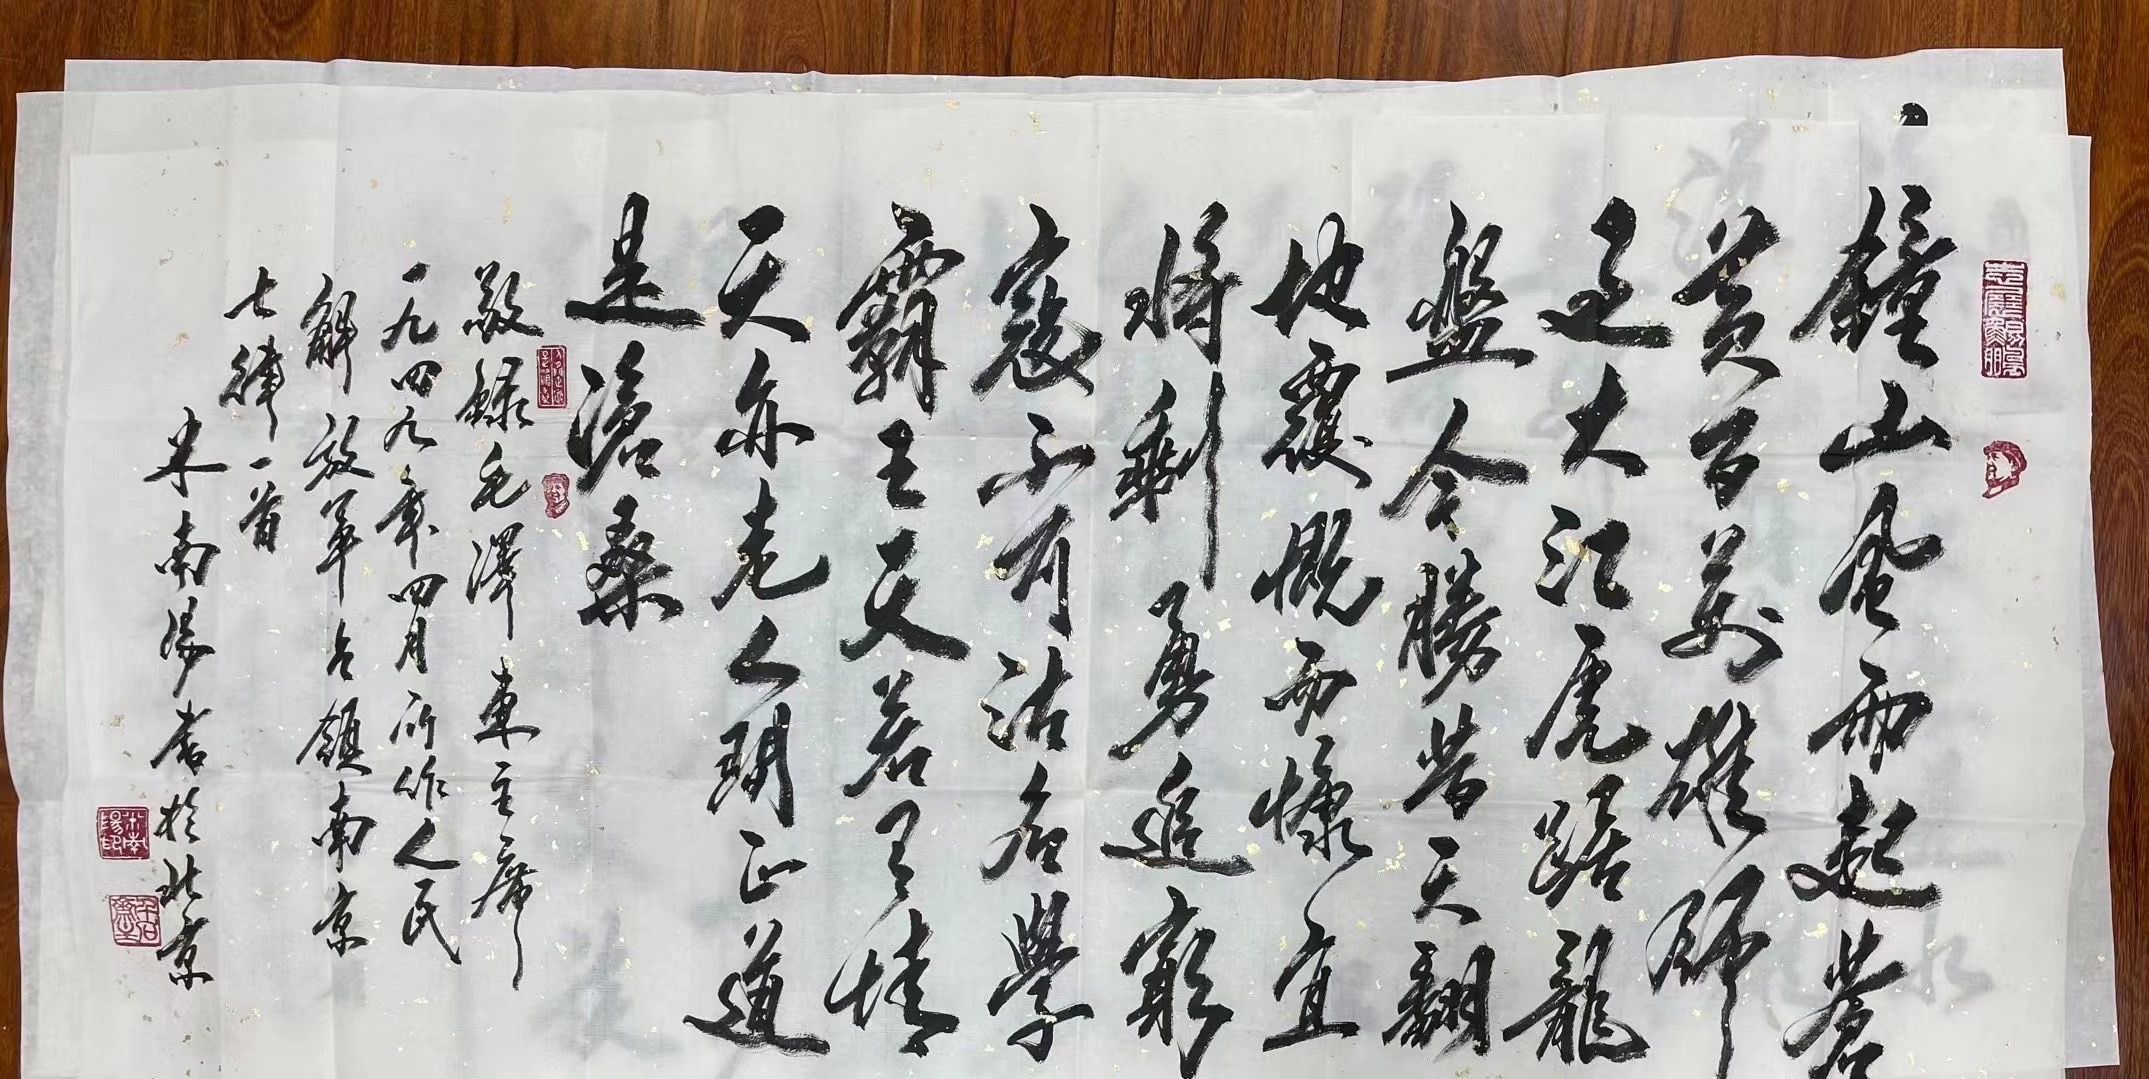 鐘山風雨起蒼
黄百萬雄師
過大江虎踞龍
盤今勝昔天翻
地覆慨而慷宜
將剩勇追窮
寇不可沽名學
霸王天若有情
天亦老人間正道
是滄桑
敬録毛澤東主席
一九四九年四月所作人民
解放軍占領南京
七律一首
米南陽書於北京
米南陽印